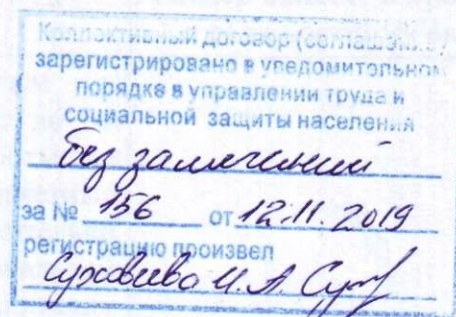 Коллективный договор (соглашение)
зарегистрировано в уведомительном
порядке в управлении труда и
социальной защиты населения
без замечаний
за № 156 от 12.11.2019
регистрацию произвел
И. А.